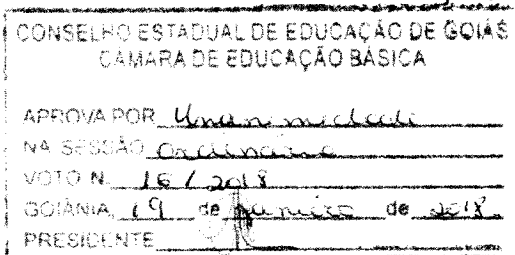 CONSELHO ESTADUAL DE EDUCAÇÃO DE GOIÁS
CÂMARA DE EDUCAÇÃO BÁSICA
APROVA POR Unanimidade
NA SESSÃO Ordinária
VOTO N. 16 / 2018
GOIÂNIA, 19 de janeiro de 2018.
PRESIDENTE